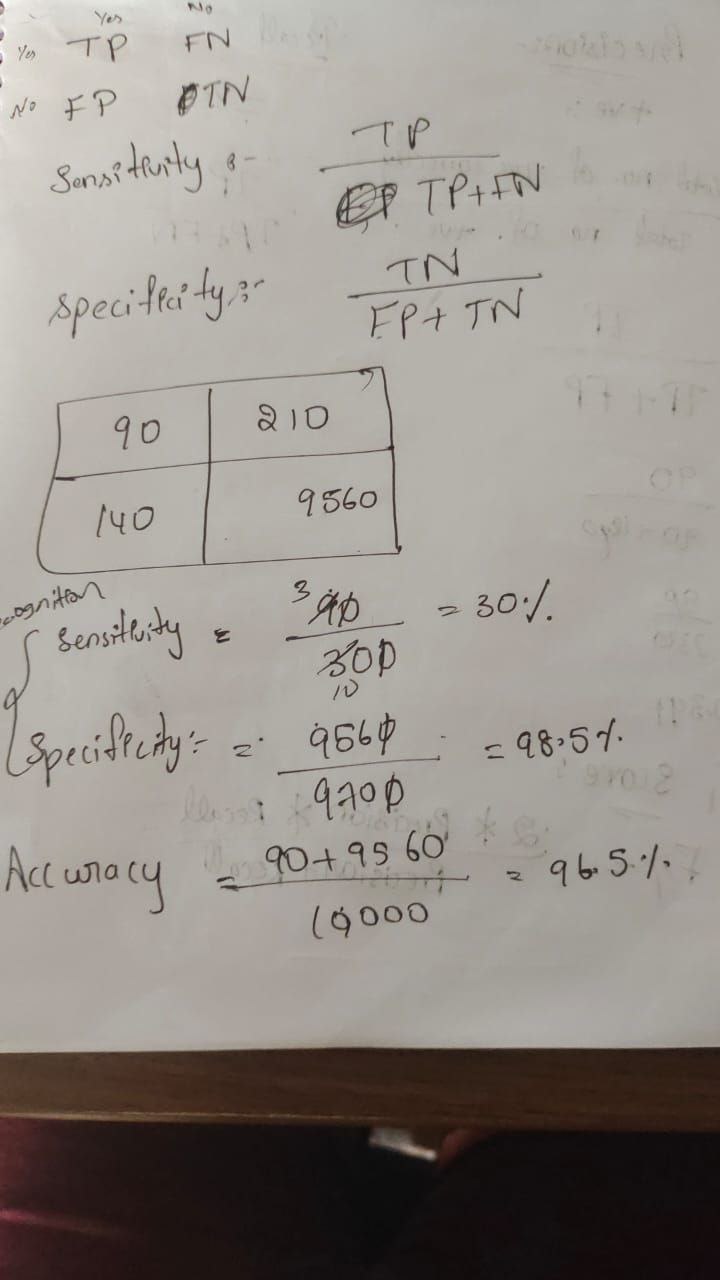 Yes No
Yes TP FN
No FP TN
Sensitivity :- TP
TP+FN
Specificity :- TN
FP+ TN
90 210
140 9560
Sensitivity = 90 = 30%.
300
3
10
Specificity :- = 9560 = 98.5%.
9700
Accuracy = 90+9560 = 96.5%.
10000